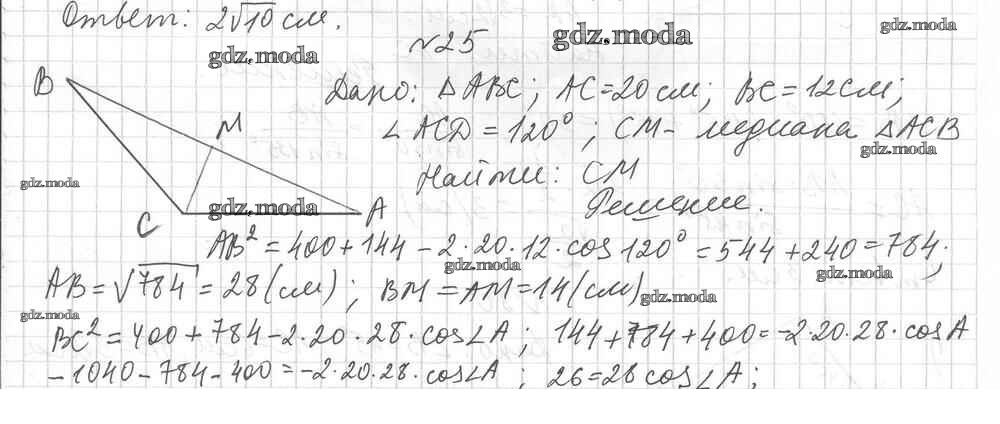 Ответ: 2√10 см.
gdz.moda
№25
gdz.moda
gdz.moda
B
Дано: △ABC; AC=20см; BC=12см;
M
∠ACD=120°; CM- медиана △ACB
gdz.moda
Найти: CM
gdz.moda
gdz.moda
A
Решение.
C
AB²=400+144-2·20·12·cos120°=544+240=784;
gdz.moda
gdz.moda
AB=√784=28(см); BM=AM=14(см)
gdz.moda
gdz.moda
BC²=400+784-2·20·28·cos∠A; 144+784+400=-2·20·28·cosA
gdz.moda
-1040-784-400=-2·20·28·cos∠A; 26=28cos∠A;